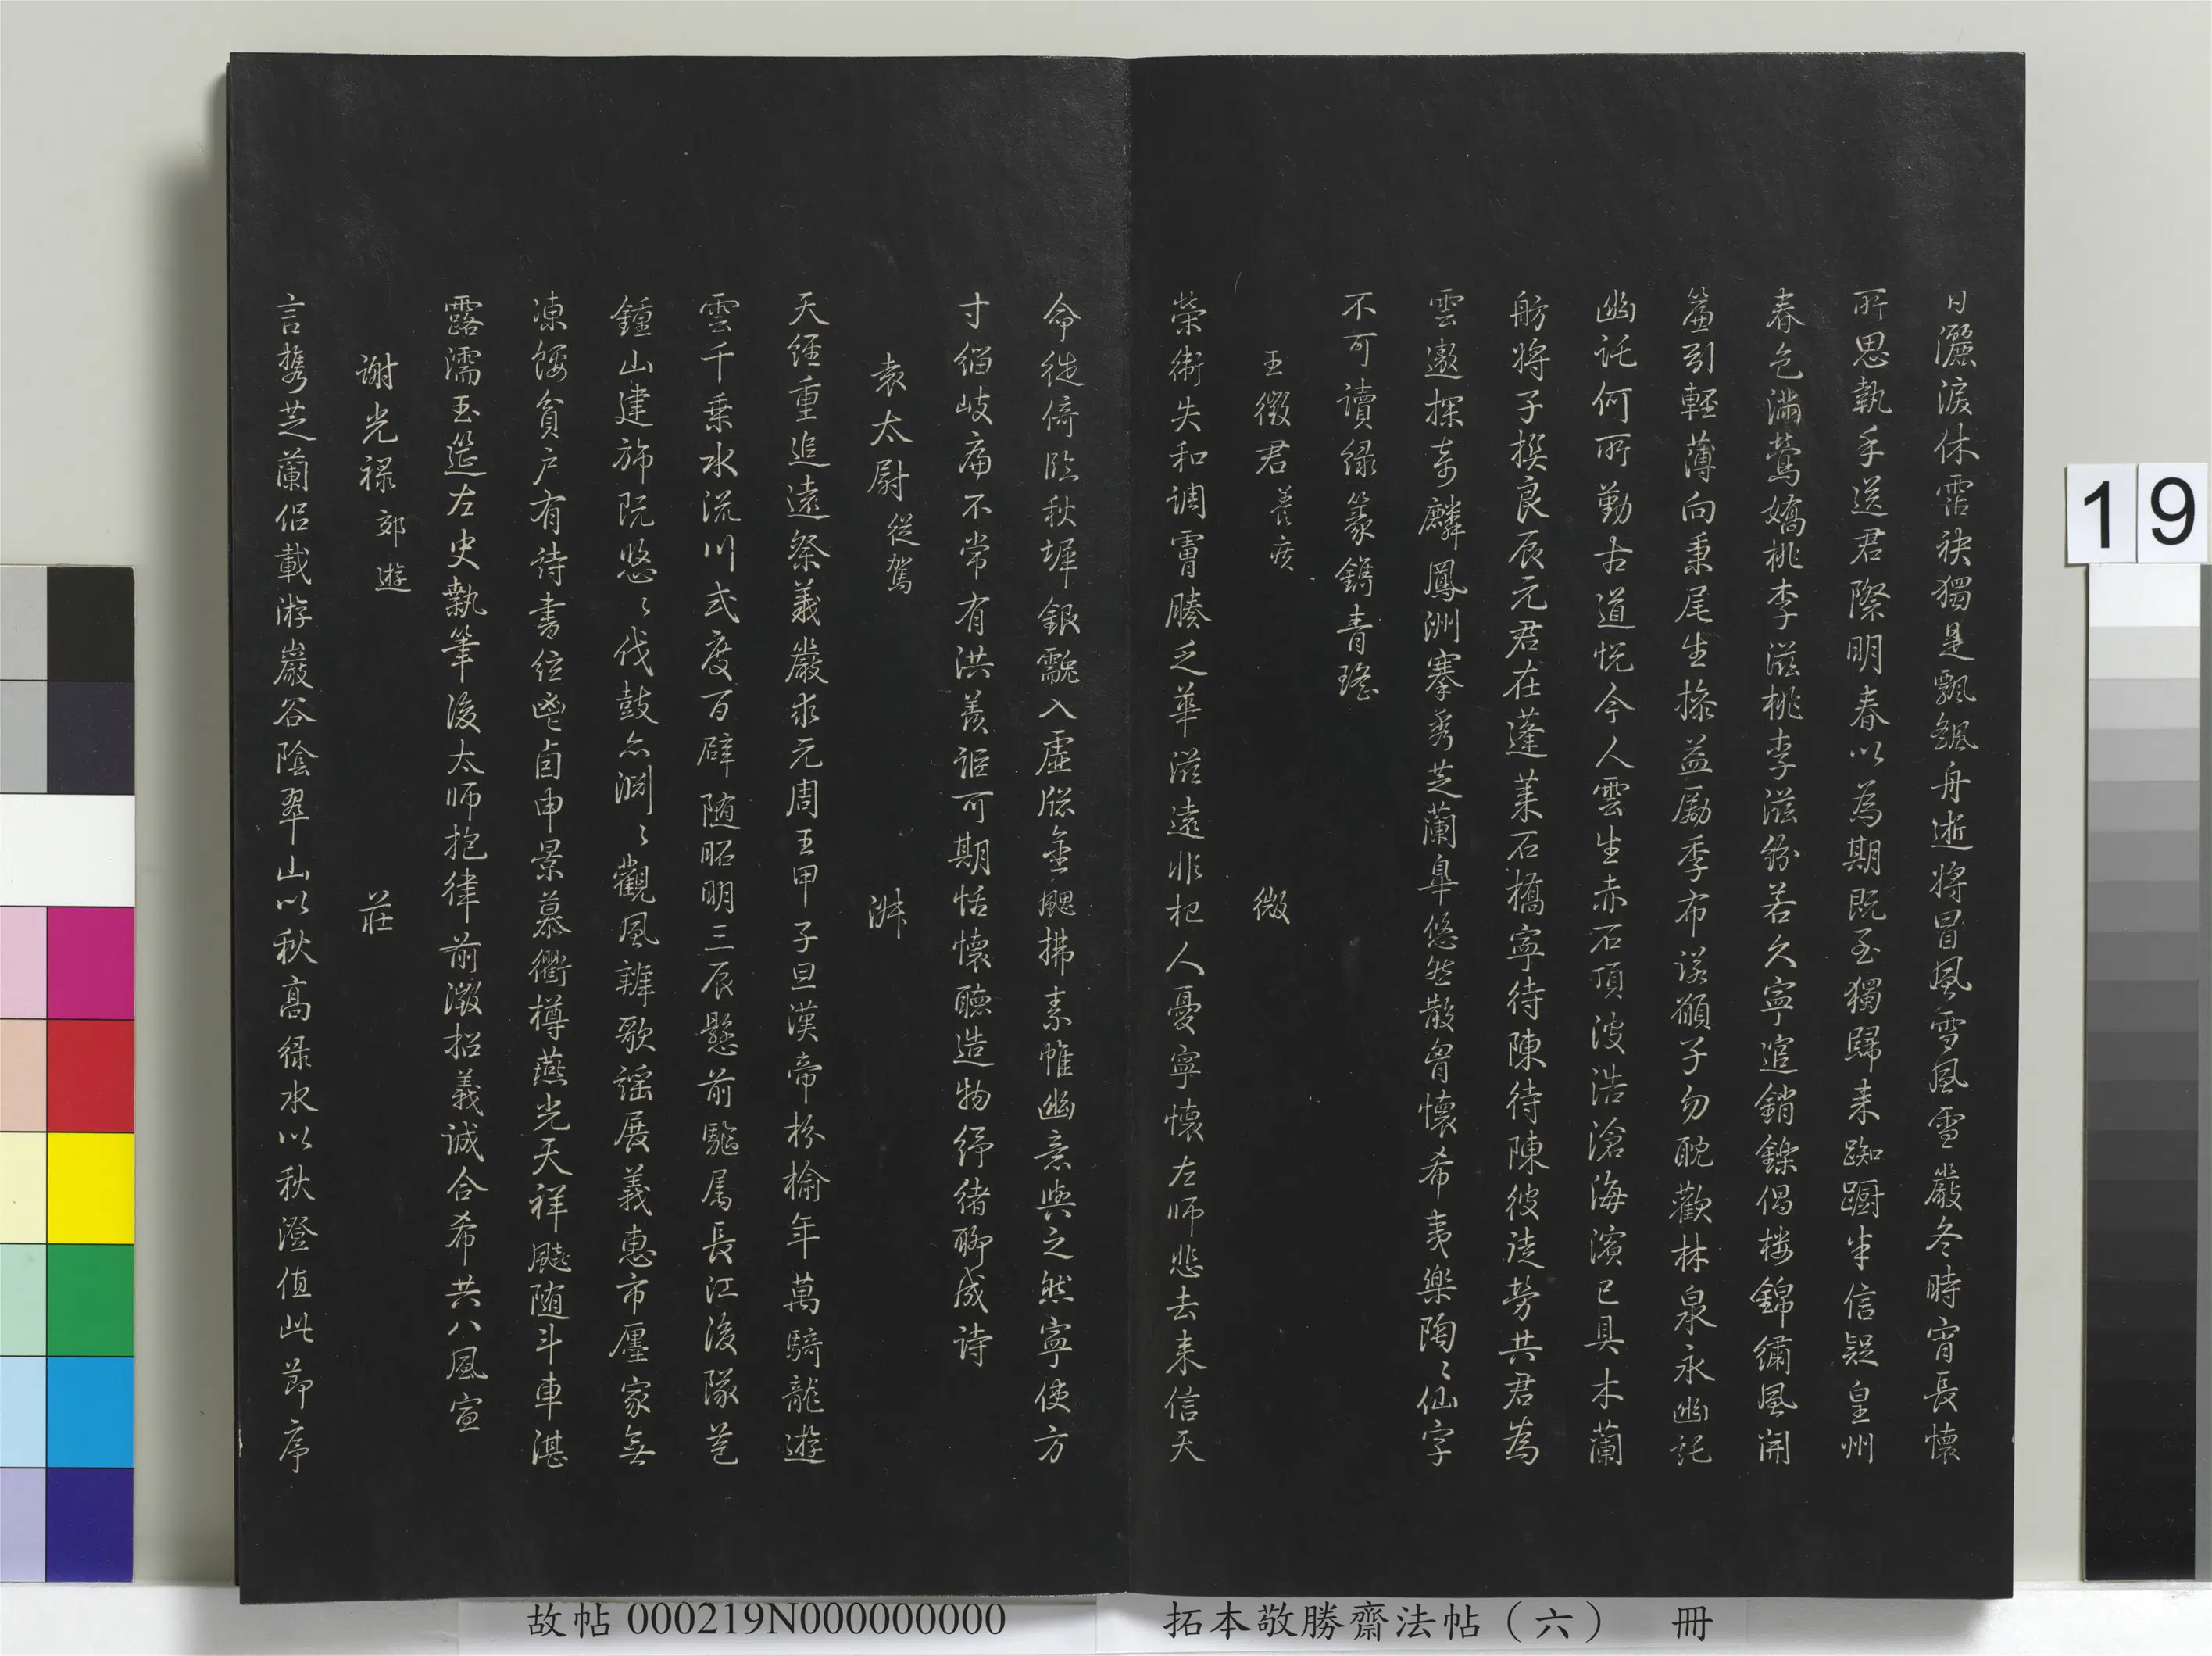 日灑淚休霑袂獨是飄颻舟逝將冒風雪風雪嚴冬時宵長懷
所思執手送君際明春以為期既至獨歸来踟蹰半信疑皇州
春色滿鶯嬌桃李滋桃李滋紛若久寧逭銷鑠偈樓錦繡風開
簷引輕薄向秉尾生操益勵季布諾願子勿耽歡林泉永幽託
幽託何所勤古道悦今人雲生赤石頂波浩滄海濱已具木蘭
舫将子撰良辰元君在蓬莱石橋寧待陳待陳彼徒勞共君為
雲遨探奇麟鳳洲搴秀芝蘭皐悠然散胷懷希夷樂陶〻仙字
不可讀緑篆鐫青瑤
王徵君 養疾 微
榮衛失和調霄勝乏華滋遠非杞人憂寧懷左師悲去来信天
命徙倚臨秋墀銀靄入虛牎金颸拂素帷幽意與之然寧使方
寸緇岐扁不常有洪羨詎可期恬懷聽造物紓緒聊成詩
袁太尉 從駕 淋
天經重追遠祭義嚴求元周王甲子旦漢帝枌榆年萬騎龍遊
雲千乘水流川式度百辟随昭明三辰懸前駈属長江後隊荖
鍾山建旆既悠〻伐鼓亦淵〻觀風辨歌謡展義惠市廛家無
凍餒貧户有詩書絃鬯卣申景慕衢樽燕光天祥飈随斗車湛
露濡玉筵左史執筆後太师抱律前激招義誠合希共八風宣
謝光禄 郊遊 莊
言攜芝蘭侣載游巖谷陰翠山以秋高緑水以秋澄值此節序
19
故帖 000219N000000000
拓本敬勝齋法帖（六） 冊